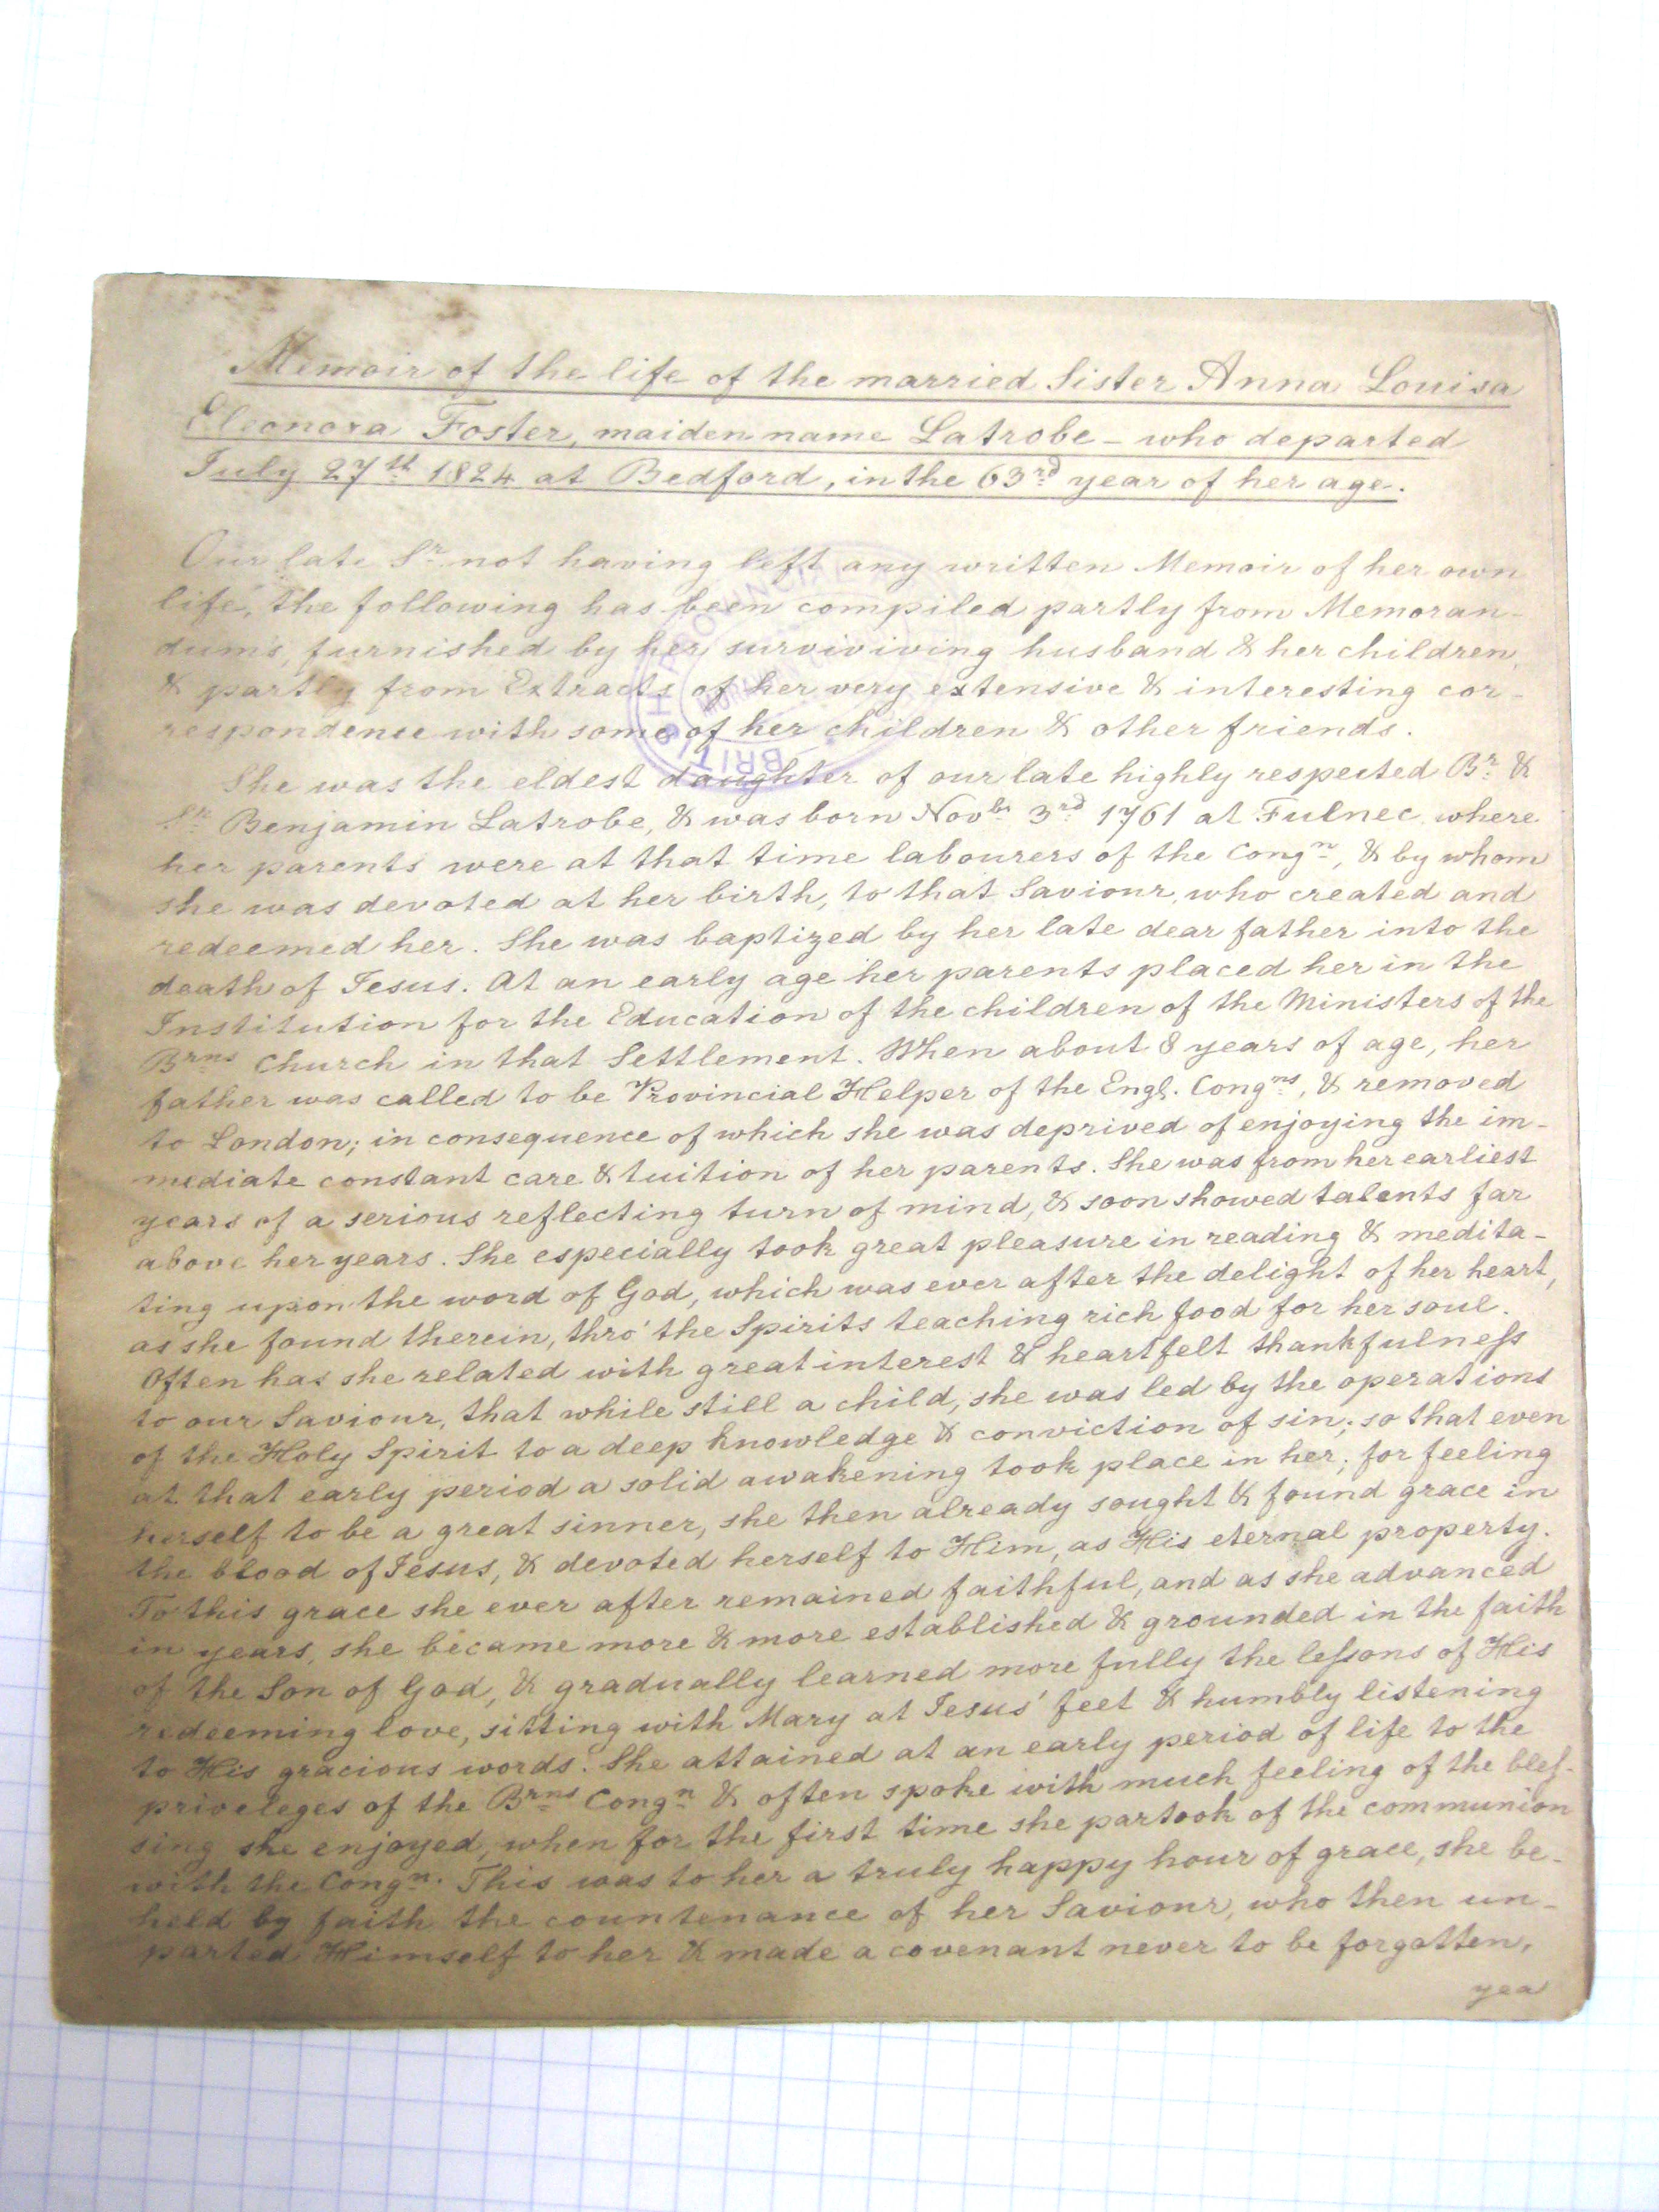 Memoir of the life of the married Sister Anna Louisa
Eleonora Foster, maiden name Latrobe – who departed
July 27th 1824 at Bedford, in the 63rd year of her age.
Our late Sr not having left any written Memoir of her own
life, the following has been compiled partly from Memoran-
dums, furnished by her surviviving husband & her children,
& partly from Extracts of her very extensive & interesting cor-
respondence with some of her children & other friends.
She was the eldest daughter of our late highly respected Br &
Sr Benjamin Latrobe, & was born Novbr 3rd 1761 at Fulnec where
her parents were at that time labourers of the Congn, & by whom
she was devoted at her birth, to that Saviour, who created and
redeemed her. She was baptized by her late dear father into the
death of Jesus. At an early age her parents placed her in the
Institution for the Education of the children of the Ministers of the
Brns Church in that Settlement. When about 8 years of age, her
father was called to be Provincial Helper of the Engl. Congns, & removed
to London; in consequence of which she was deprived of enjoying the im-
mediate constant care & tuition of her parents. She was from her earliest
years of a serious reflecting turn of mind, & soon showed talents far
above her years. She especially took great pleasure in reading & medita-
ting upon the word of God, which was ever after the delight of her heart,
as she found therein, thro' the Spirits teaching rich food for her soul.
Often has she related with great interest & heartfelt thankfulneſs
to our Saviour, that while still a child, she was led by the operations
of the Holy Spirit to a deep knowledge & conviction of sin; so that even
at that early period a solid awakening took place in her; for feeling
herself to be a great sinner, she then already sought & found grace in
the blood of Jesus, & devoted herself to Him, as His eternal property.
To this grace she ever after remained faithful, and as she advanced
in years, she became more & more established & grounded in the faith
of the Son of God, & gradually learned more fully the leſsons of His
redeeming love, sitting with Mary at Jesus' feet & humbly listening
to His gracious words. She attained at an early period of life to the
priveleges of the Brns Congn & often spoke with much feeling of the bleſ-
sing she enjoyed, when for the first time she partook of the communion
with the Congn. This was to her a truly happy hour of grace, she be-
held by faith the countenance of her Saviour, who then un-
parted Himself to her & made a covenant never to be forgotten,
yea
BRITISH